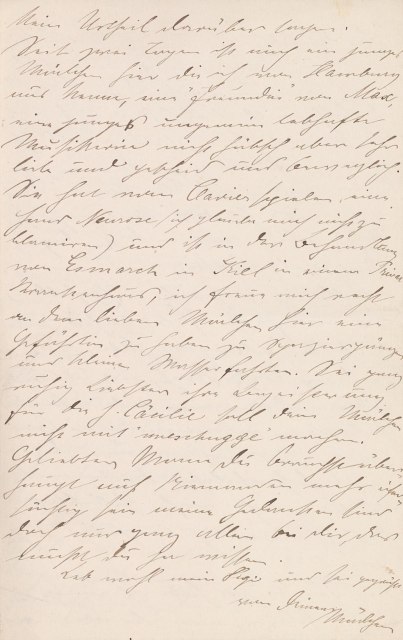 Mein Urtheil darüber sagen.
Seit zwei Tagen ist noch ein junges
Mädchen hier die ich von Hamburg
aus kenne, eine "Freundin" von Max
ein junges ungemein lebhafte
Musikerin nicht hübsch aber sehr
lieb und gescheid und beweglich.
Sie hat vom Clavierspielen eine
Hand Neurose (ich glaube mich nicht zu
blamiren) und ist in der Behandlung
von Esmarch in Kiel in einem Privat
Krankenhaus, ich freue mich recht
an dem lieben Mädchen hier eine
Gefährtin zu haben zu Spaziergängen
und kleinen Wasserfahrten. Sei ganz
ruhig Liebster ihre Begeisterung
für die h. Cäcilie soll dein Mädchen
nicht mit "meschugge" machen.
Geliebter Mann du brauchst über
haupt auf Niemanden mehr eifer
süchtig sein meine Gedanken sind
doch nur ganz allein bei dir das
mußt du ja wissen.
Leb wohl mein und sei gegrüßt
von Deinem Mädchen